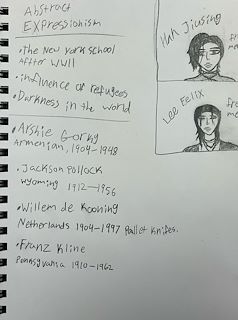 Abstract
Expressionism
• The new york school
affter WWII
• influence of refugees
• Darkness in the world
• Arshie Gorky
Armenian, 1904-1948
• Jackson Pollock
Wyoming 1912-1956
• Willem de Kooning
Netherlands 1904-1997 Pallet knifes.
• Franz Kline
Pennsyvania 1910-1962
Han Jiusing
Lee Felix